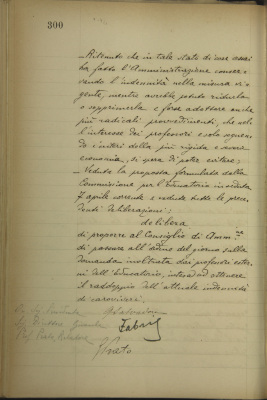 300
„ Ritenuto che in tale stato di cose assai
ha fatto l'Amministrazione conser-
vando l'indennità nella misura vi-
gente, mentre avrebbe potuto ridurla
o sopprimerla e forse adottare anche
più radicali provvedimenti, che nel-
l'interesse dei professori e solo seguen-
do i criteri della più rigida e severa
economia, si spera di poter evitare;
„ Veduta la proposta formulata dalla
Commissione per l'Educatorio in seduta
7 aprile corrente e vedute tutte le prece-
denti deliberazioni;
delibera
di proporre al Consiglio di Amm.ne
di passare all'ordine del giorno sulla
domanda inoltrata dai professori ester-
ni dell'Educatorio, intesa ad ottenere
il raddoppio dell'attuale indennità
di caroviveri.
Fabris
Prato